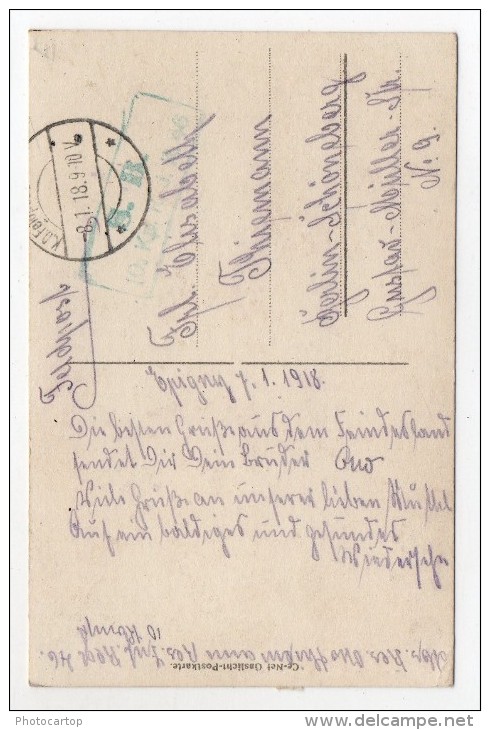 Feldpost
K.D. Feldp
8.1.18. 9-10 V.
S. B.
Frl. Elisabeth
Thiemann
Berlin-Schöneberg
Gustav-Müller-Str.
N. 9.
7. 1. 1918.
Die besten Grüße aus dem Feindesland
sendet Dir Dein Bruder Otto
Viele Grüße an unserer lieben
Auf ein baldiges und gesundes
Wiedersehn
Otto Thiemann Res. Inf. Reg. 46.
10 Komp
Ce-Net Gaslicht-Postkarte.
Photocartop
delcampe.net